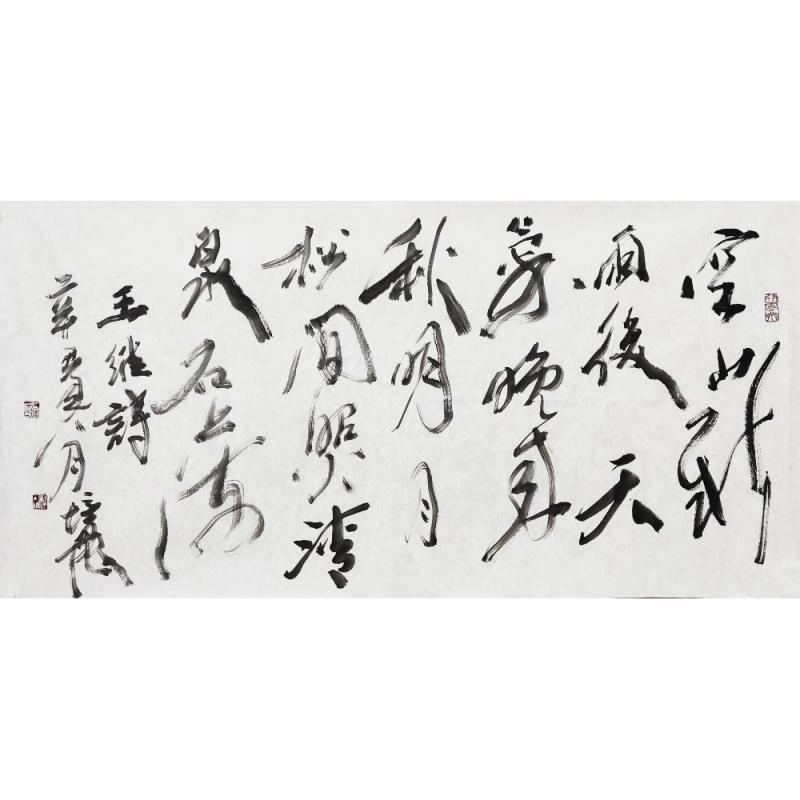 空山新
雨後天
氣晚来
秋明月
松間照清
泉石上流
王維詩
辛丑八月